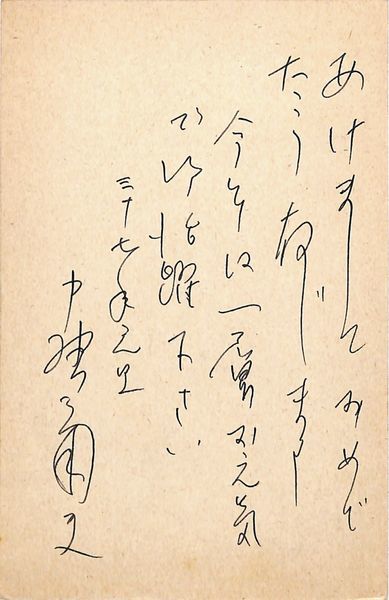 あけましておめで
たう存じます
今年は一層お元気
で御活躍下さい
三十七年元旦
中村